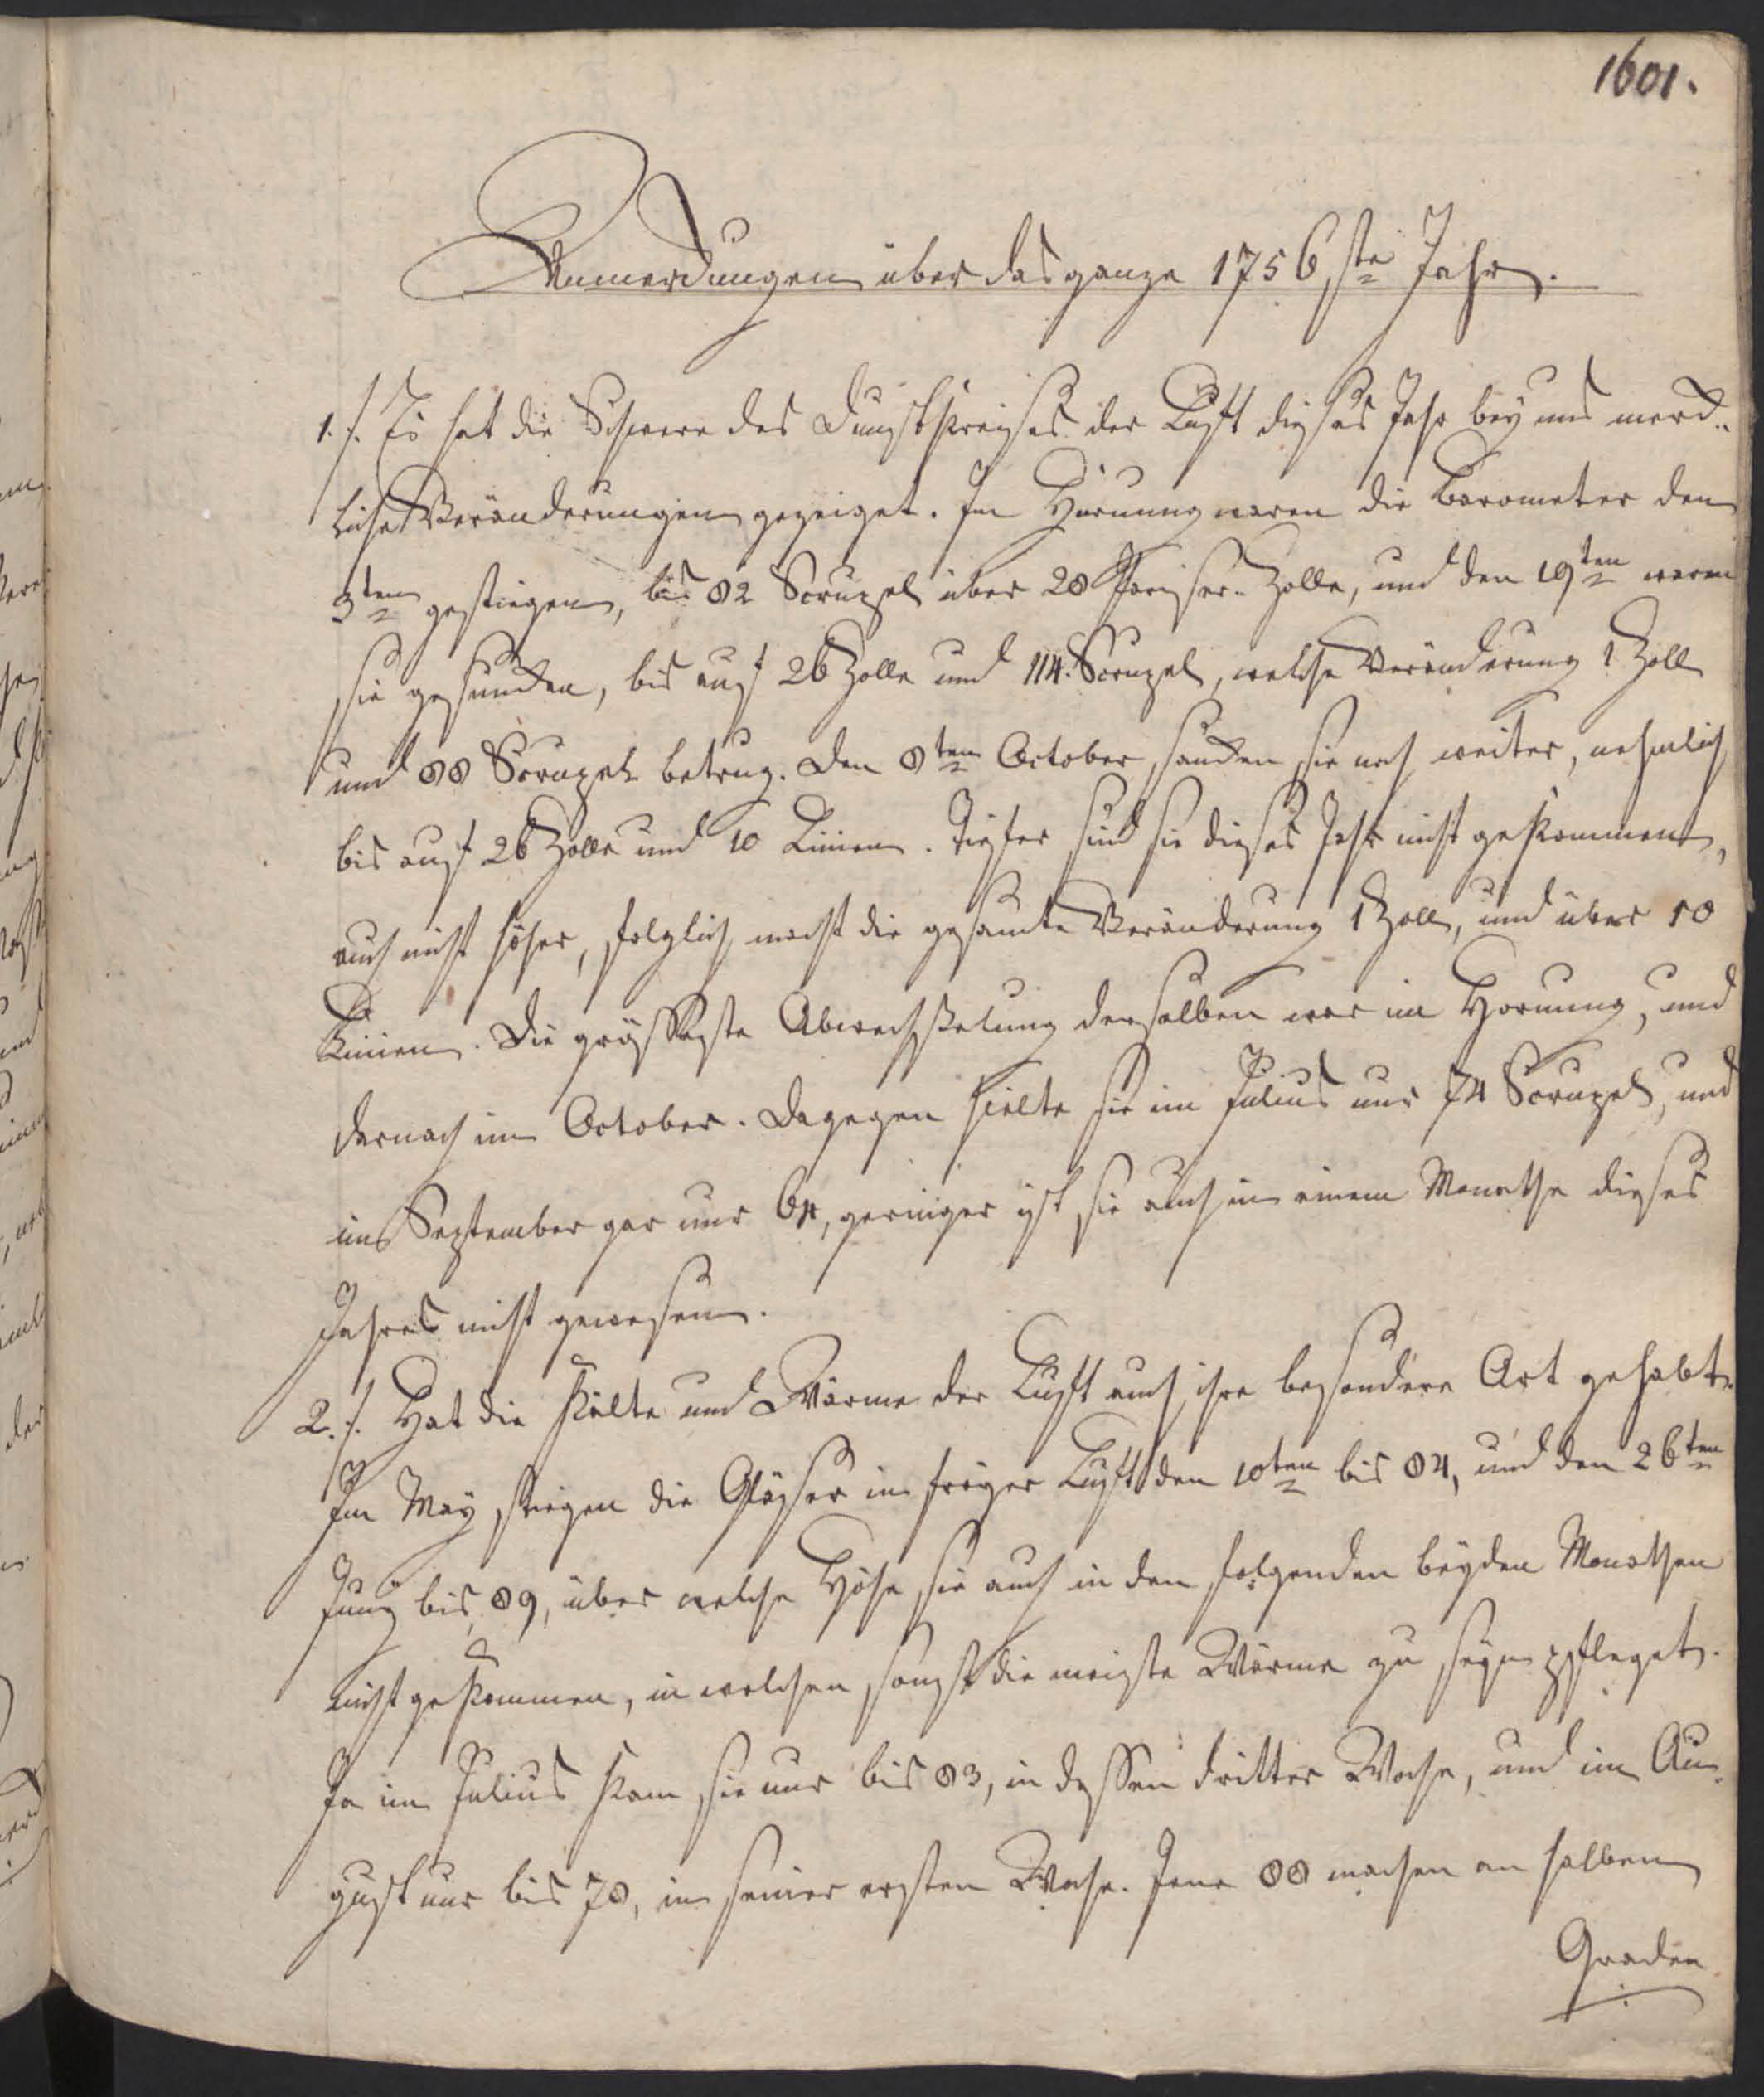 1601.
Anmerckungen über das ganze 1756ste Jahr.
1./. Es hat die Schwere des Dunstkreyses der Luft dieses Jahr bey uns merck-
liche Veränderungen gezeiget. Im Hornung waren die Barometer den
3ten gestiegen, bis 82 Scrupel über 28 Pariser-Zolle, und den 19ten waren
sie gesuncken, bis auf 26 Zolle und 114. Scrupel, welche Veränderung 1 Zoll
und 88 Scrupel betrug. Den 8ten October sancken sie noch weiter, nehmlich
bis auf 26 Zolle und 10 Linien. Tiefer sind sie dieses Jahr nicht gekommen,
auch nicht höher, folglich macht die gesamte Veränderung 1 Zoll, und über 10
Linien. Die grösseste Abwechselung derselben war im Hornung, und
darnach im October. Dagegen hielte sie im Julius nur 74 Scrupel, und
im September gar nur 64, geringer ist sie auch in einem Monathe dieses
Jahres nicht gewesen.
2./. Hat die Kälte und Wärme der Luft auch ihre besondere Art gehabt.
Im May stiegen die Gläser in freyer Luft den 10ten bis 84, und den 26ten
Juny bis 89, über welche Höhe sie auch in den folgenden beyden Monathen
nicht gekommen, in welchen sonst die meiste Wärme zu seyn pfleget.
Ja im Julius kam sie nur bis 83, in dessen dritter Woche, und im Au-
gust nur bis 78, in seiner ersten Woche. Jene 88 machen an halben
Graden